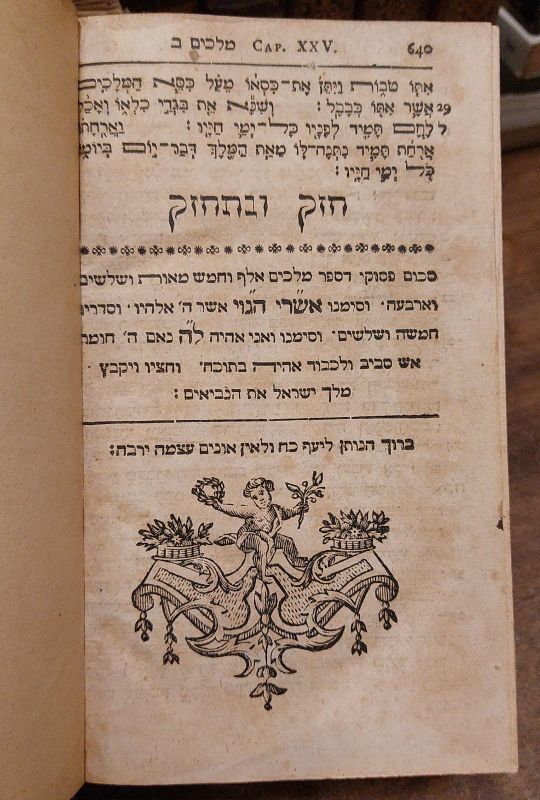 640 Cap. XXV. מלכים ב
אִתּוֹ טֹבוֹת וַיִּתֵּן אֶת־כִּסְאוֹ מֵעַל כִּסֵּא הַמְּלָכִים
29 אֲשֶׁר אִתּוֹ בְּבָבֶל: וְשִׁנָּא אֵת בִּגְדֵי כִלְאוֹ וְאָכַל
ל לֶחֶם תָּמִיד לְפָנָיו כָּל־יְמֵי חַיָּיו: וַאֲרֻחָתוֹ
אֲרֻחַת תָּמִיד נִתְּנָה־לּוֹ מֵאֵת הַמֶּלֶךְ דְּבַר־יוֹם בְּיוֹמוֹ
כֹּל יְמֵי חַיָּיו:
חזק ונתחזק
סכום פסוקי דספר מלכים אלף וחמש מאות ושלשים
וארבעה. וסימנו אשרי הגוי אשר ה' אלהיו. וסדריו
חמשה ושלשים. וסימנו ואני אהיה לה נאם ה' חומת
אש סביב ולכבוד אהיה בתוכה. וחציו ויקבץ
מלך ישראל את הנביאים:
ברוך הנותן ליעף כח ולאין אונים עצמה ירבה: